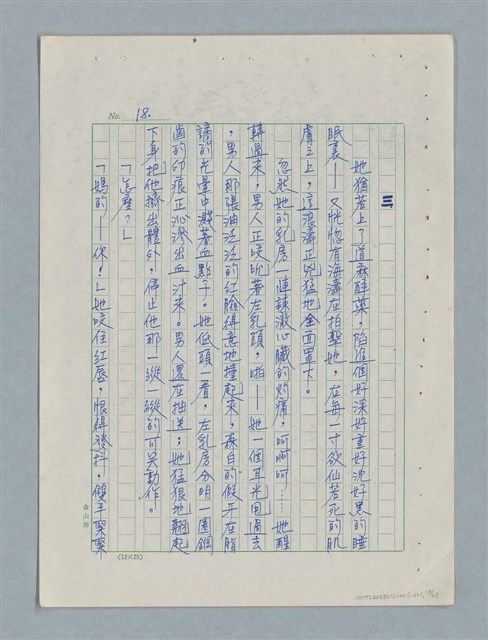 No. 18.
三
她猶若上了道麻醉藥,陷進個好深好重好沈好黑的睡
眠裏——又恍惚有海濤在拍擊她,在每一寸欲仙若死的肌
膚之上,這浪濤正兇猛地全面罩下。
忽然她的乳房一連辣激心臟的灼痛,呵啊呵……她醒
轉過來,男人正咬著左乳頭,啪——她一個耳光甩過去
,男人那張油泛泛的紅臉得意地撞起來,森白的假牙在脂
的光暈中濺著血點子。她低頭一看,左乳房分明一圈鋼
齒的印痕正沁滲出血汁來。男人還在抽送;她猛狠地翻起
下身把他擠出體外,停止他那一縱一縱的可笑動作。
「怎麼?」
「媽的——你!」她咬住紅唇,恨得發抖,雙手緊緊
(12×25)